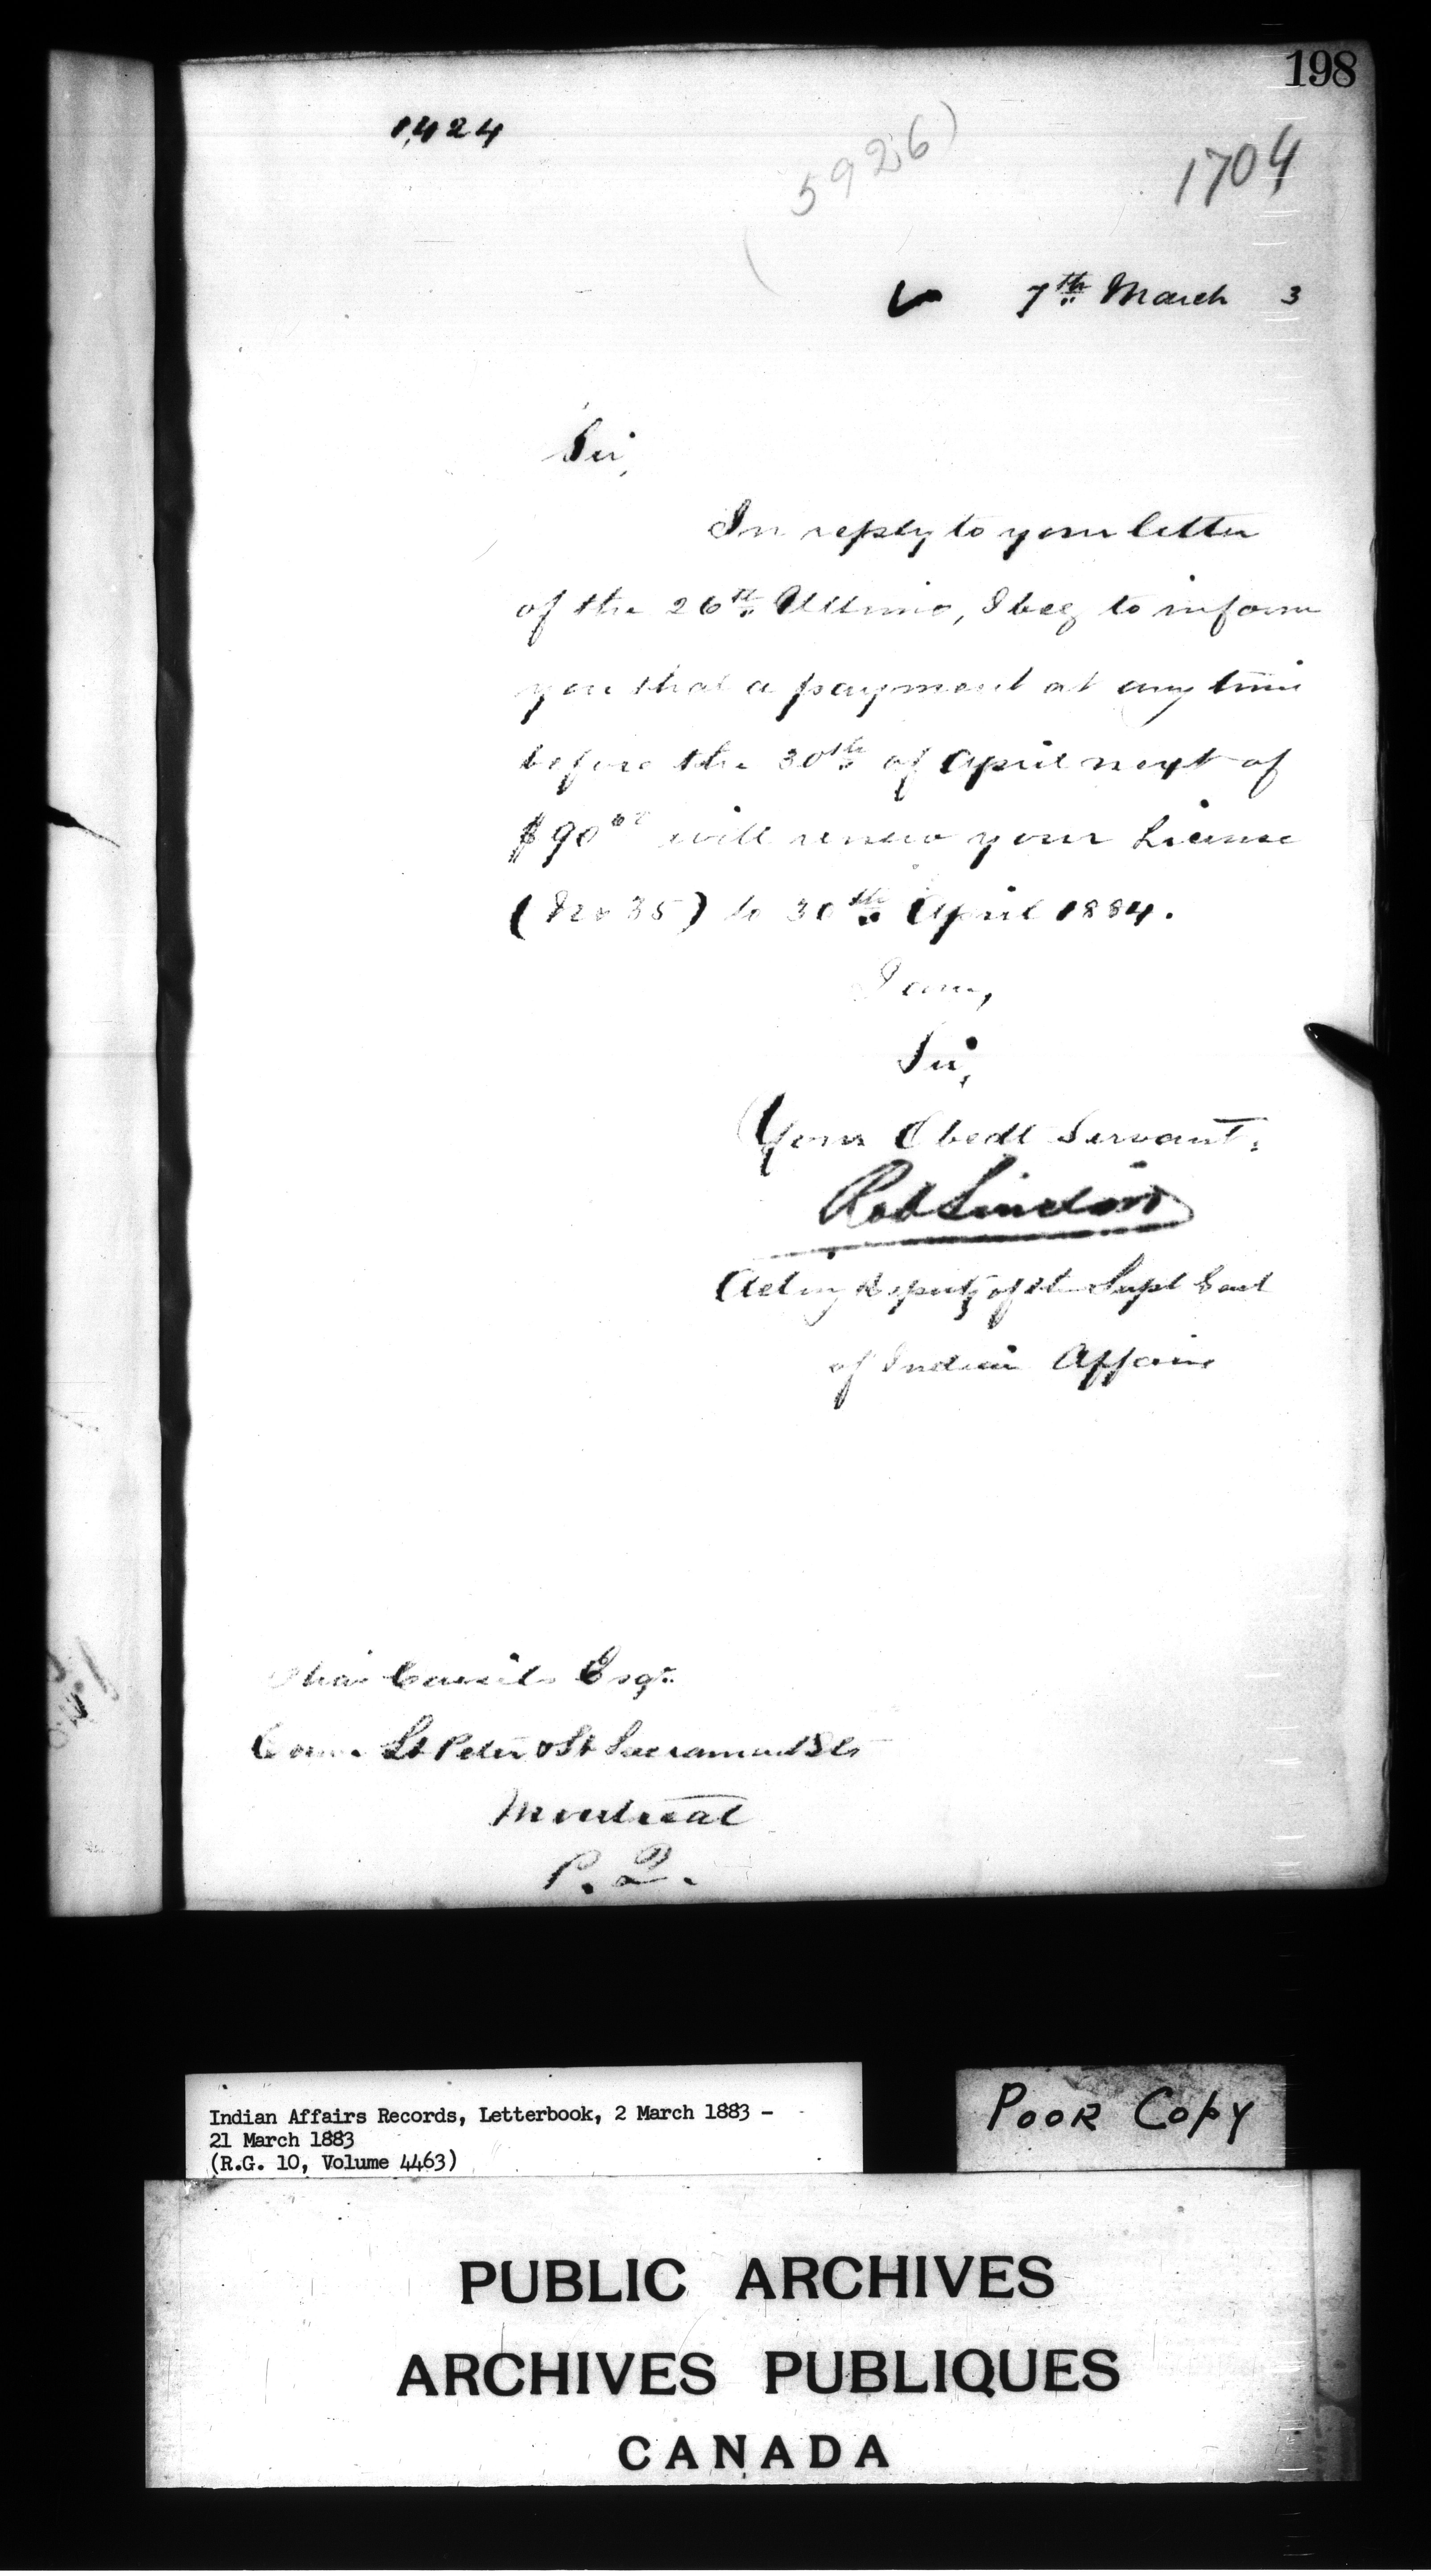 198
1424
(5926)
1704
7th March 3
Sir,
In reply to your letter
of the 26th Ultimo, I beg to inform
you that a payment at any time
before the 30th of April next of
$90 00 will renew your License
(No 35) to 30th April 1884.
I am,
Sir,
Your Obedt Servant,
Rob Sinclair
Acting Deputy of the Supt Genl
of Indian Affairs
Chas Cassils Esqr.
Corner St Peter & St Sacrament Sts
Montreal
P. Q.
Indian Affairs Records, Letterbook, 2 March 1883 -
21 March 1883
(R.G. 10, Volume 4463)
POOR COPY
PUBLIC ARCHIVES
ARCHIVES PUBLIQUES
CANADA